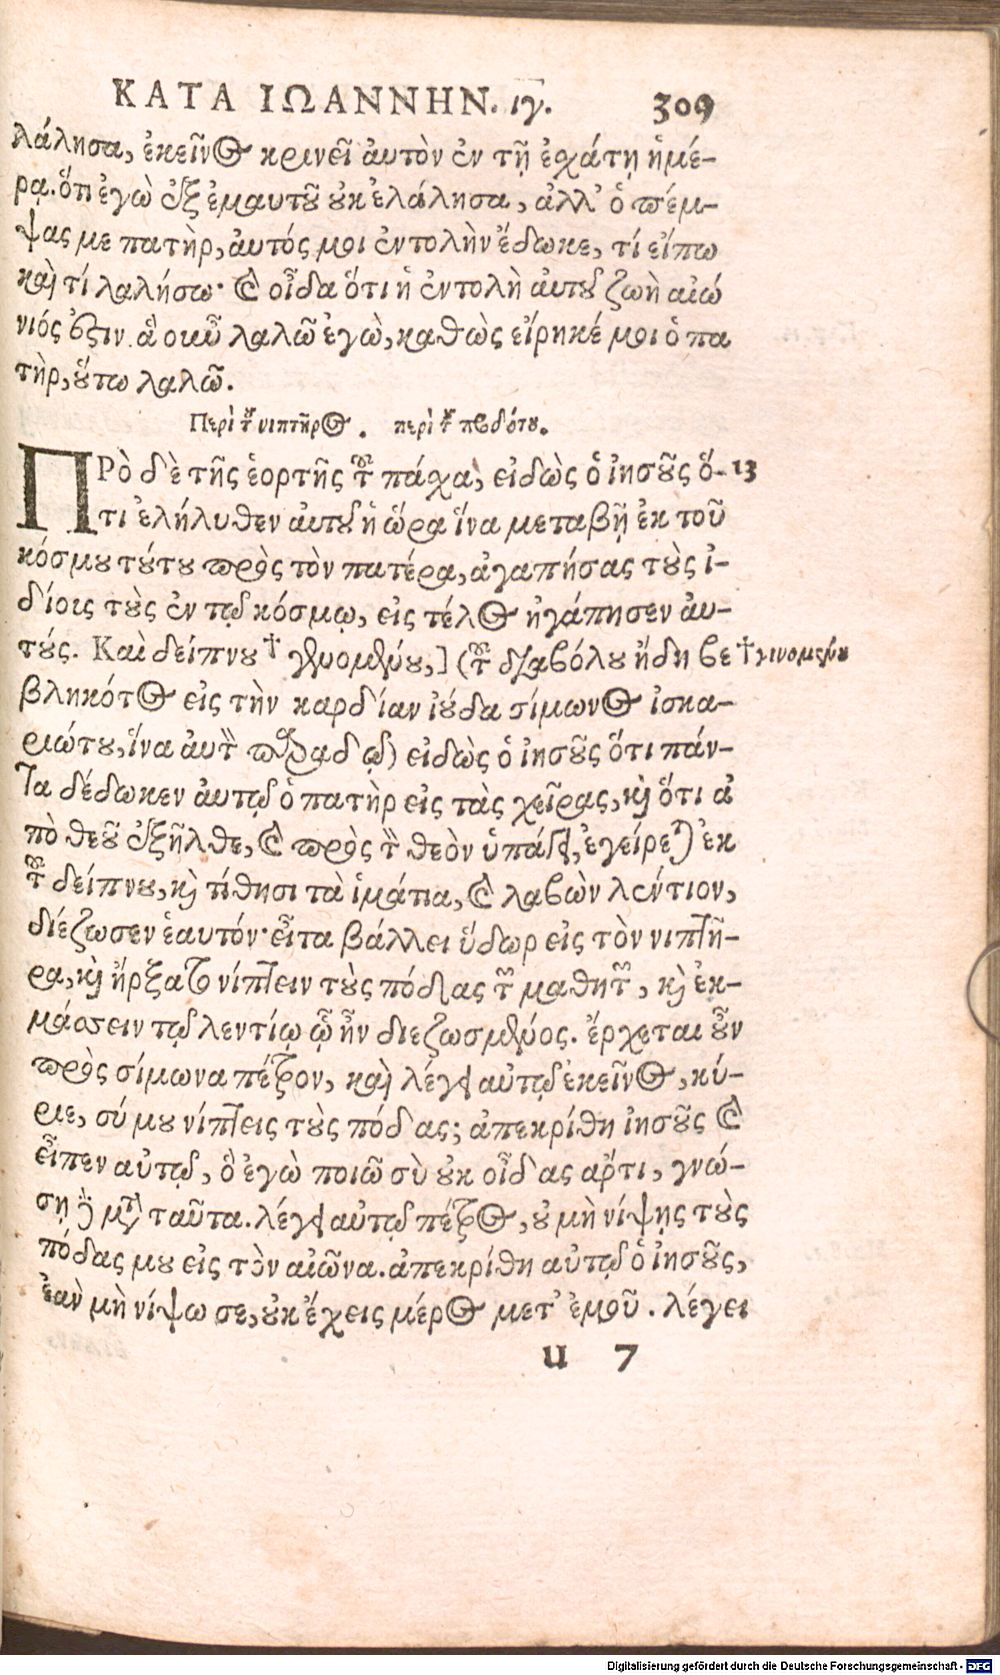 ΚΑΤΑ ΙΩΑΝΝΗΝ. ιγ. 309
λάλησα, ἐκεῖνος κρινεῖ ἀυτὸν ἐν τῇ ἐσχάτῃ ἡμέ-
ρᾳ. ὅτι ἐγὼ ἐξ ἐμαυτοῦ οὐκ ἐλάλησα, ἀλλ' ὁ πέμ-
ψας με πατὴρ, ἀυτός μοι ἐντολὴν ἔδωκε, τί εἴπω
καὶ τί λαλήσω· καὶ οἶδα ὅτι ἡ ἐντολὴ ἀυτοῦ ζωὴ αἰώ
νιός ἐστιν. ἃ οὖν λαλῶ ἐγὼ, καθὼς εἴρηκέ μοι ὁ πα
τὴρ, οὕτω λαλῶ.
Περὶ τοῦ νιπτῆρος. περὶ τοῦ προδότου.
ΠΡὸ δὲ τῆς ἑορτῆς τοῦ πάσχα, εἰδὼς ὁ ἰησοῦς ὅ- 13
τι ἐλήλυθεν ἀυτοῦ ἡ ὥρα ἵνα μεταβῇ ἐκ τοῦ
κόσμου τούτου πρὸς τὸν πατέρα, ἀγαπήσας τοὺς ἰ-
δίοις τοὺς ἐν τῷ κόσμῳ, εἰς τέλος ἠγάπησεν ἀυ-
τούς. Καὶ δείπνου † γενομένου,] (τοῦ διαβόλου ἤδη βε † γινομένου
βληκότος εἰς τὴν καρδίαν ἰούδα σίμωνος ἰσκα-
ριώτου, ἵνα ἀυτὸν παραδῷ) εἰδὼς ὁ ἰησοῦς ὅτι πάν-
τα δέδωκεν ἀυτῷ ὁ πατὴρ εἰς τὰς χεῖρας, καὶ ὅτι ἀ
πὸ θεοῦ ἐξῆλθε, καὶ πρὸς τὸν θεὸν ὑπάγει, ἐγείρεται ἐκ
τοῦ δείπνου, καὶ τίθησι τὰ ἱμάτια, καὶ λαβὼν λέντιον,
διέζωσεν ἑαυτόν· εἶτα βάλλει ὕδωρ εἰς τὸν νιπτῆ-
ρα, καὶ ἤρξατο νίπτειν τοὺς πόδας τῶν μαθητῶν, καὶ ἐκ-
μάσσειν τῷ λεντίῳ ᾧ ἦν διεζωσμένος. ἔρχεται οὖν
πρὸς σίμωνα πέτρον, καὶ λέγει αὐτῷ ἐκεῖνος, κύ-
ριε, σύ μου νίπτεις τοὺς πόδας; ἀπεκρίθη ἰησοῦς καὶ
εἶπεν αὐτῷ, ὃ ἐγὼ ποιῶ σὺ οὐκ οἶδας ἄρτι, γνώ-
σῃ δὲ μετὰ ταῦτα. λέγει αὐτῷ πέτρος, οὐ μὴ νίψῃς τοὺς
πόδας μου εἰς τὸν αἰῶνα. ἀπεκρίθη αὐτῷ ὁ ἰησοῦς,
ἐαν μὴ νίψω σε, οὐκ ἔχεις μέρος μετ' ἐμοῦ. λέγει
u 7
Digitalisierung gefördert durch die Deutsche Forschungsgemeinschaft - DFG